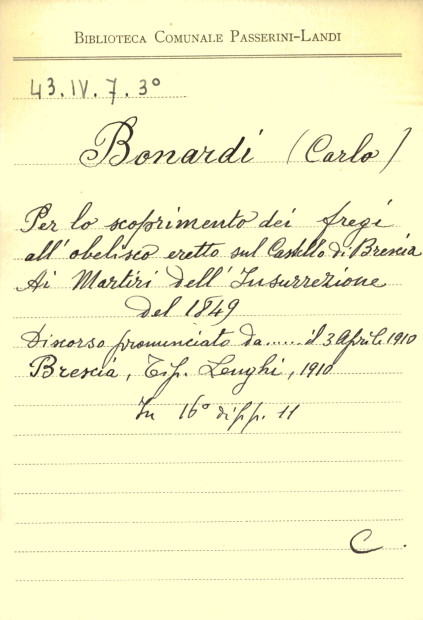 BIBLIOTECA COMUNALE PASSERINI-LANDI
43.IV.7.3°
Bonardi (Carlo)
Per lo scoprimento dei fregi
all'obelisco eretto sul Castello di Brescia
Ai Martiri dell'Insurrezione
del 1849
Discorso pronunciato da...... il 3 Aprile 1910
Brescia, Tip. Lenghi, 1910
In 16° di pp. 11
C.